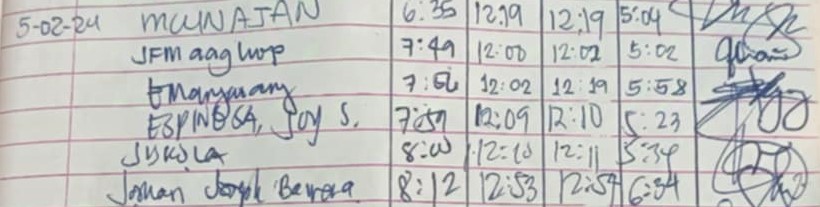 5-02-24 MUNAJAN 6:35 12:19 12:19 5:04
JFMaaghop 7:49 12:00 12:02 5:02
7:56 12:02 12:19 5:58
ESPINOSA, Joy S. 7:59 12:09 12:10 5:23
8:00 12:10 12:11 5:34
Joseph Barrera 8:12 12:53 12:54 6:34